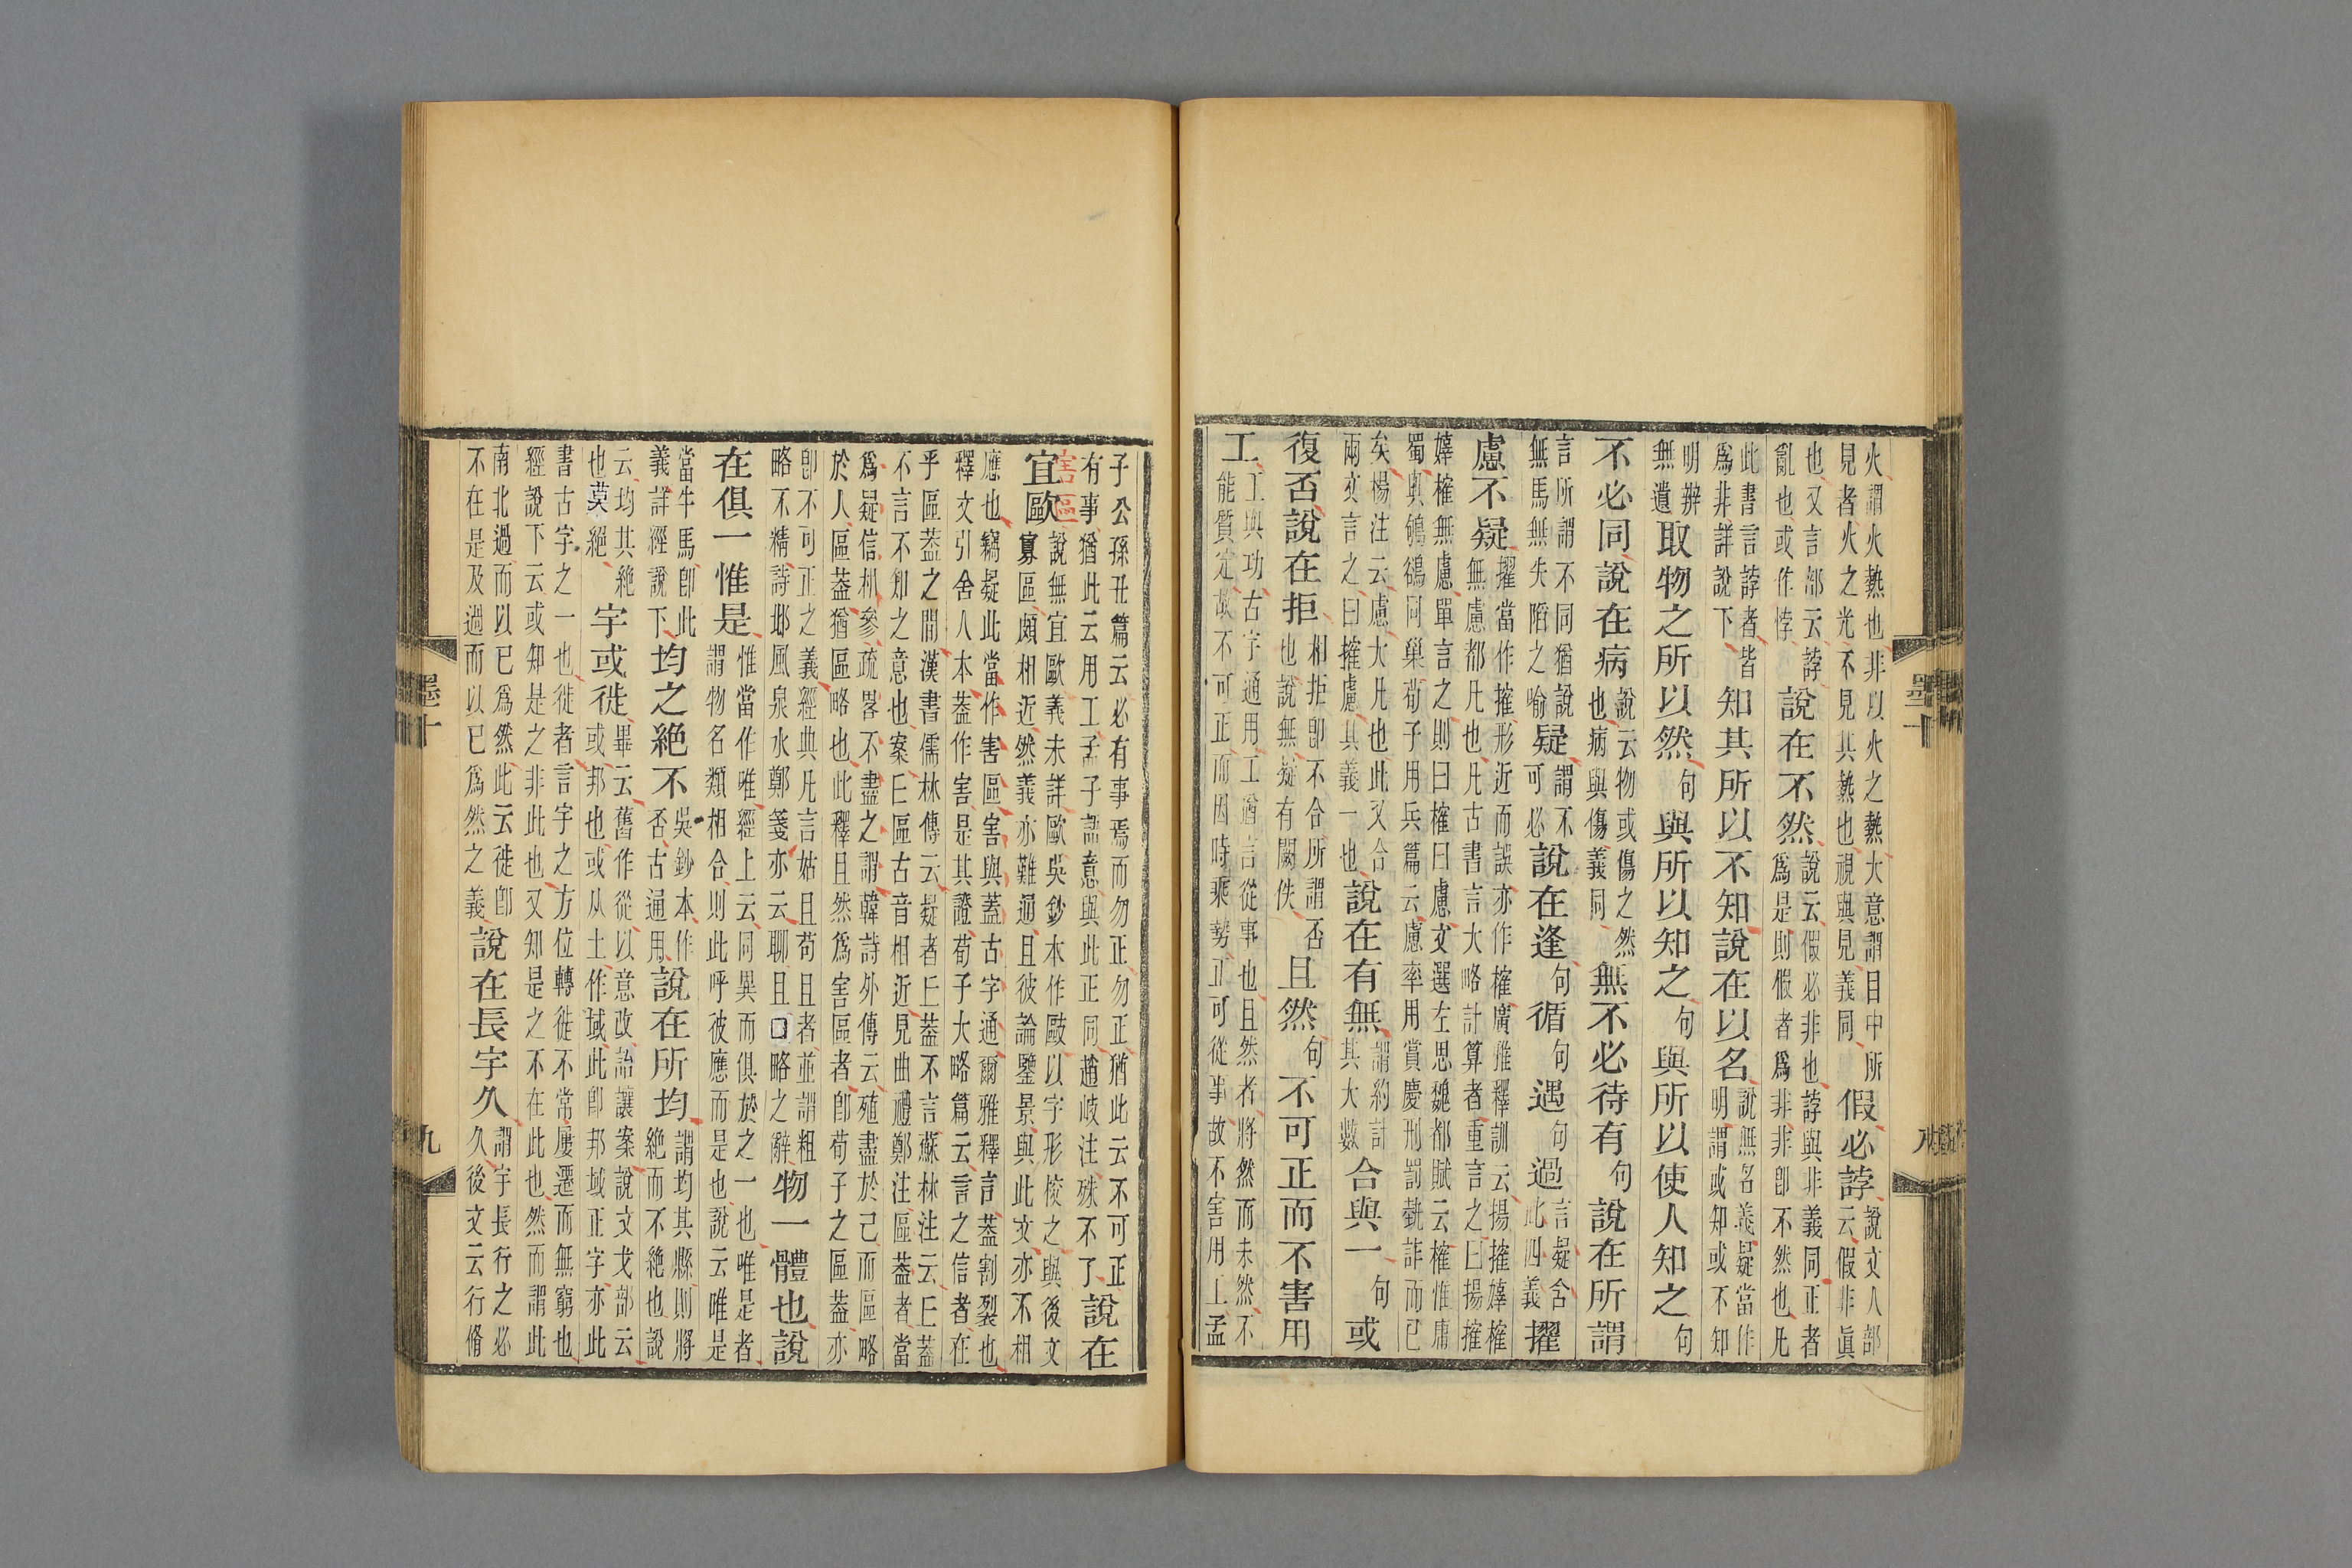 火謂火熱也非以火之熱大意謂目中所
見者火之光不見其熱也視與見義同
假必誖
說文人部
云假非眞
也又言部云誖
亂也或作悖
說在不然
說云假必非也誖與非義同正者
爲是則假者爲非非卽不然也凡
此書言誖者皆
爲非詳說下
知其所以不知說在以名
說無名義疑當作
明謂或知或不知
明辦
無遺
取物之所以然句與所以知之句與所以使人知之句
不必同說在病
說云物或傷之然
也病與傷義同
無不必待有句說在所謂
言所謂不同猶說
無馬無失陷之喻
疑
謂不
可必
說在逢句循句遇句過
言疑含
此四義
擢
慮不疑
擢當作搉形近而誤亦作榷廣雅釋訓云揚搉嫴榷
無慮都凡也凡古書言大略計算者重言之曰揚搉
嫴榷無慮單言之則曰榷曰慮文選左思魏都賦云榷惟庸
蜀與鴝鵒同巢荀子用兵篇云慮率用賞慶刑罰埶詐而已
矣楊注云慮大凡也此又合
兩文言之曰搉慮其義一也
說在有無
謂約計
其大數
合與一句或
復否說在拒
相拒卽不合所謂否
也說無疑有闕佚
且然句不可正而不害用
工
工與功古字通用工猶言從事也且然者將然而未然不
能質定故不可正而因時乘勢正可從事故不害用工孟
墨十
八
子公孫丑篇云必有事焉而勿正勿正猶此云不可正
有事猶此云用工孟子語意與此正同趙岐注殊不了
說在
宜歐
害區
說無宜歐義未詳歐吳鈔本作敺以字形校之與後文
寡區頗相近然義亦難通且彼論鑒景與此文亦不相
應也竊疑此當作害區害與蓋古字通爾雅釋言蓋割裂也
釋文引舍人本葢作害是其證荀子大略篇云言之信者在
乎區葢之間漢書儒林傳云疑者𠀉葢不言蘇林注云𠀉葢
不言不知之意也案𠀉區古音相近見曲禮鄭注區葢者當
爲疑信相參疏畧不盡之謂韓詩外傳云殖盡於己而區略
於人區葢猶區略也此釋且然爲害區者卽荀子之區葢亦
卽不可正之義經典凡言姑且苟且者並謂粗
略不精詩邶風泉水鄭箋亦云聊且口略之辭
物一體也說
在俱一惟是
惟當作唯經上云同異而俱於之一也唯是者
謂物名類相合則此呼彼應而是也說云唯是
當牛馬卽此
義詳經說下
均之絶不
吳鈔本作
否古通用
說在所均
謂均其縣則將
絶而不絶也說
云均其絶
也莫絕
宇或徙
畢云舊作從以意改詒讓案說文戈部云
或邦也或从土作域此卽邦域正字亦此
書古字之一也徙者言宇之方位轉徙不常屢遷而無窮也
經說下云或知是之非此也又知是之不在此也然而謂此
南北過而以已爲然此云徙卽
不在是及過而以已爲然之義
說在長宇久
謂宇長行之必
久後文云行脩
墨十
九